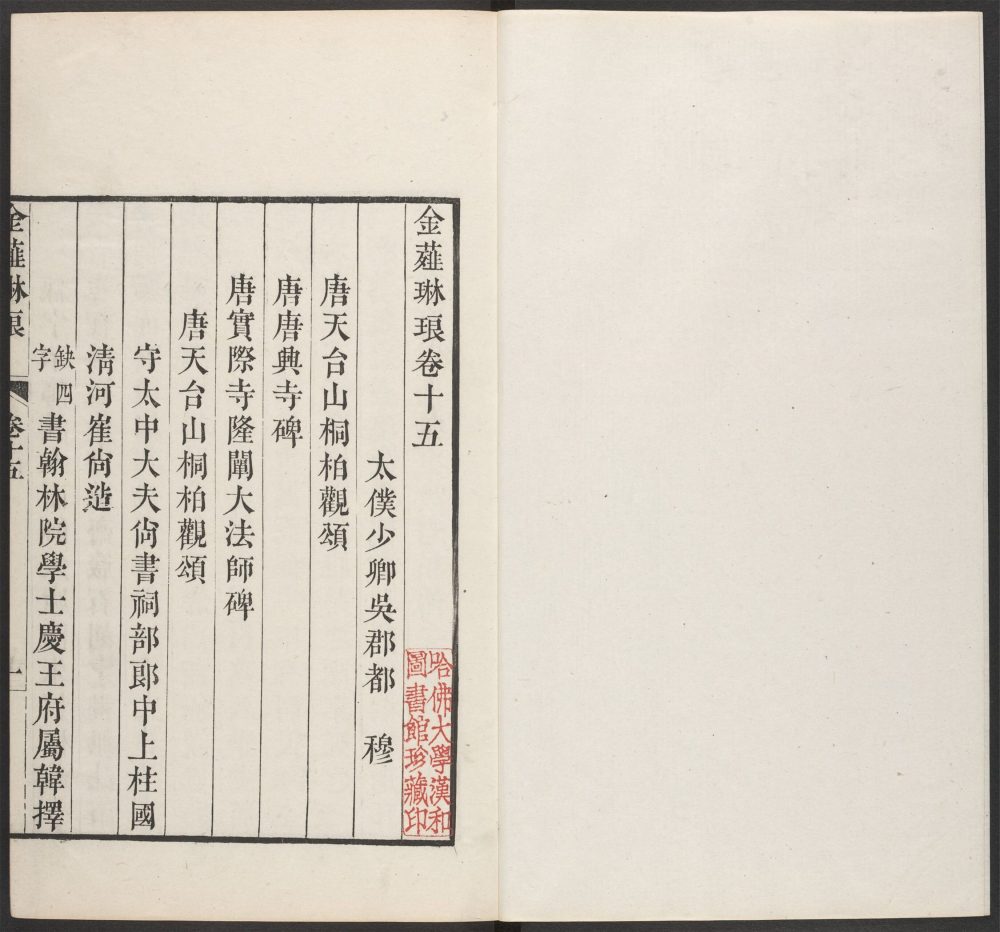 金薤琳琅卷十五
太僕少卿吳郡都　穆
唐天台山桐柏觀頌
唐唐興寺碑
唐實際寺隆闡大法師碑
唐天台山桐柏觀頌
守太中大夫尙書祠部郎中上柱國
清河崔尙造
缺四字書翰林院學士慶王府屬韓擇
金薤琳琅　卷十五　一
哈佛大學漢和
圖書館珍藏印